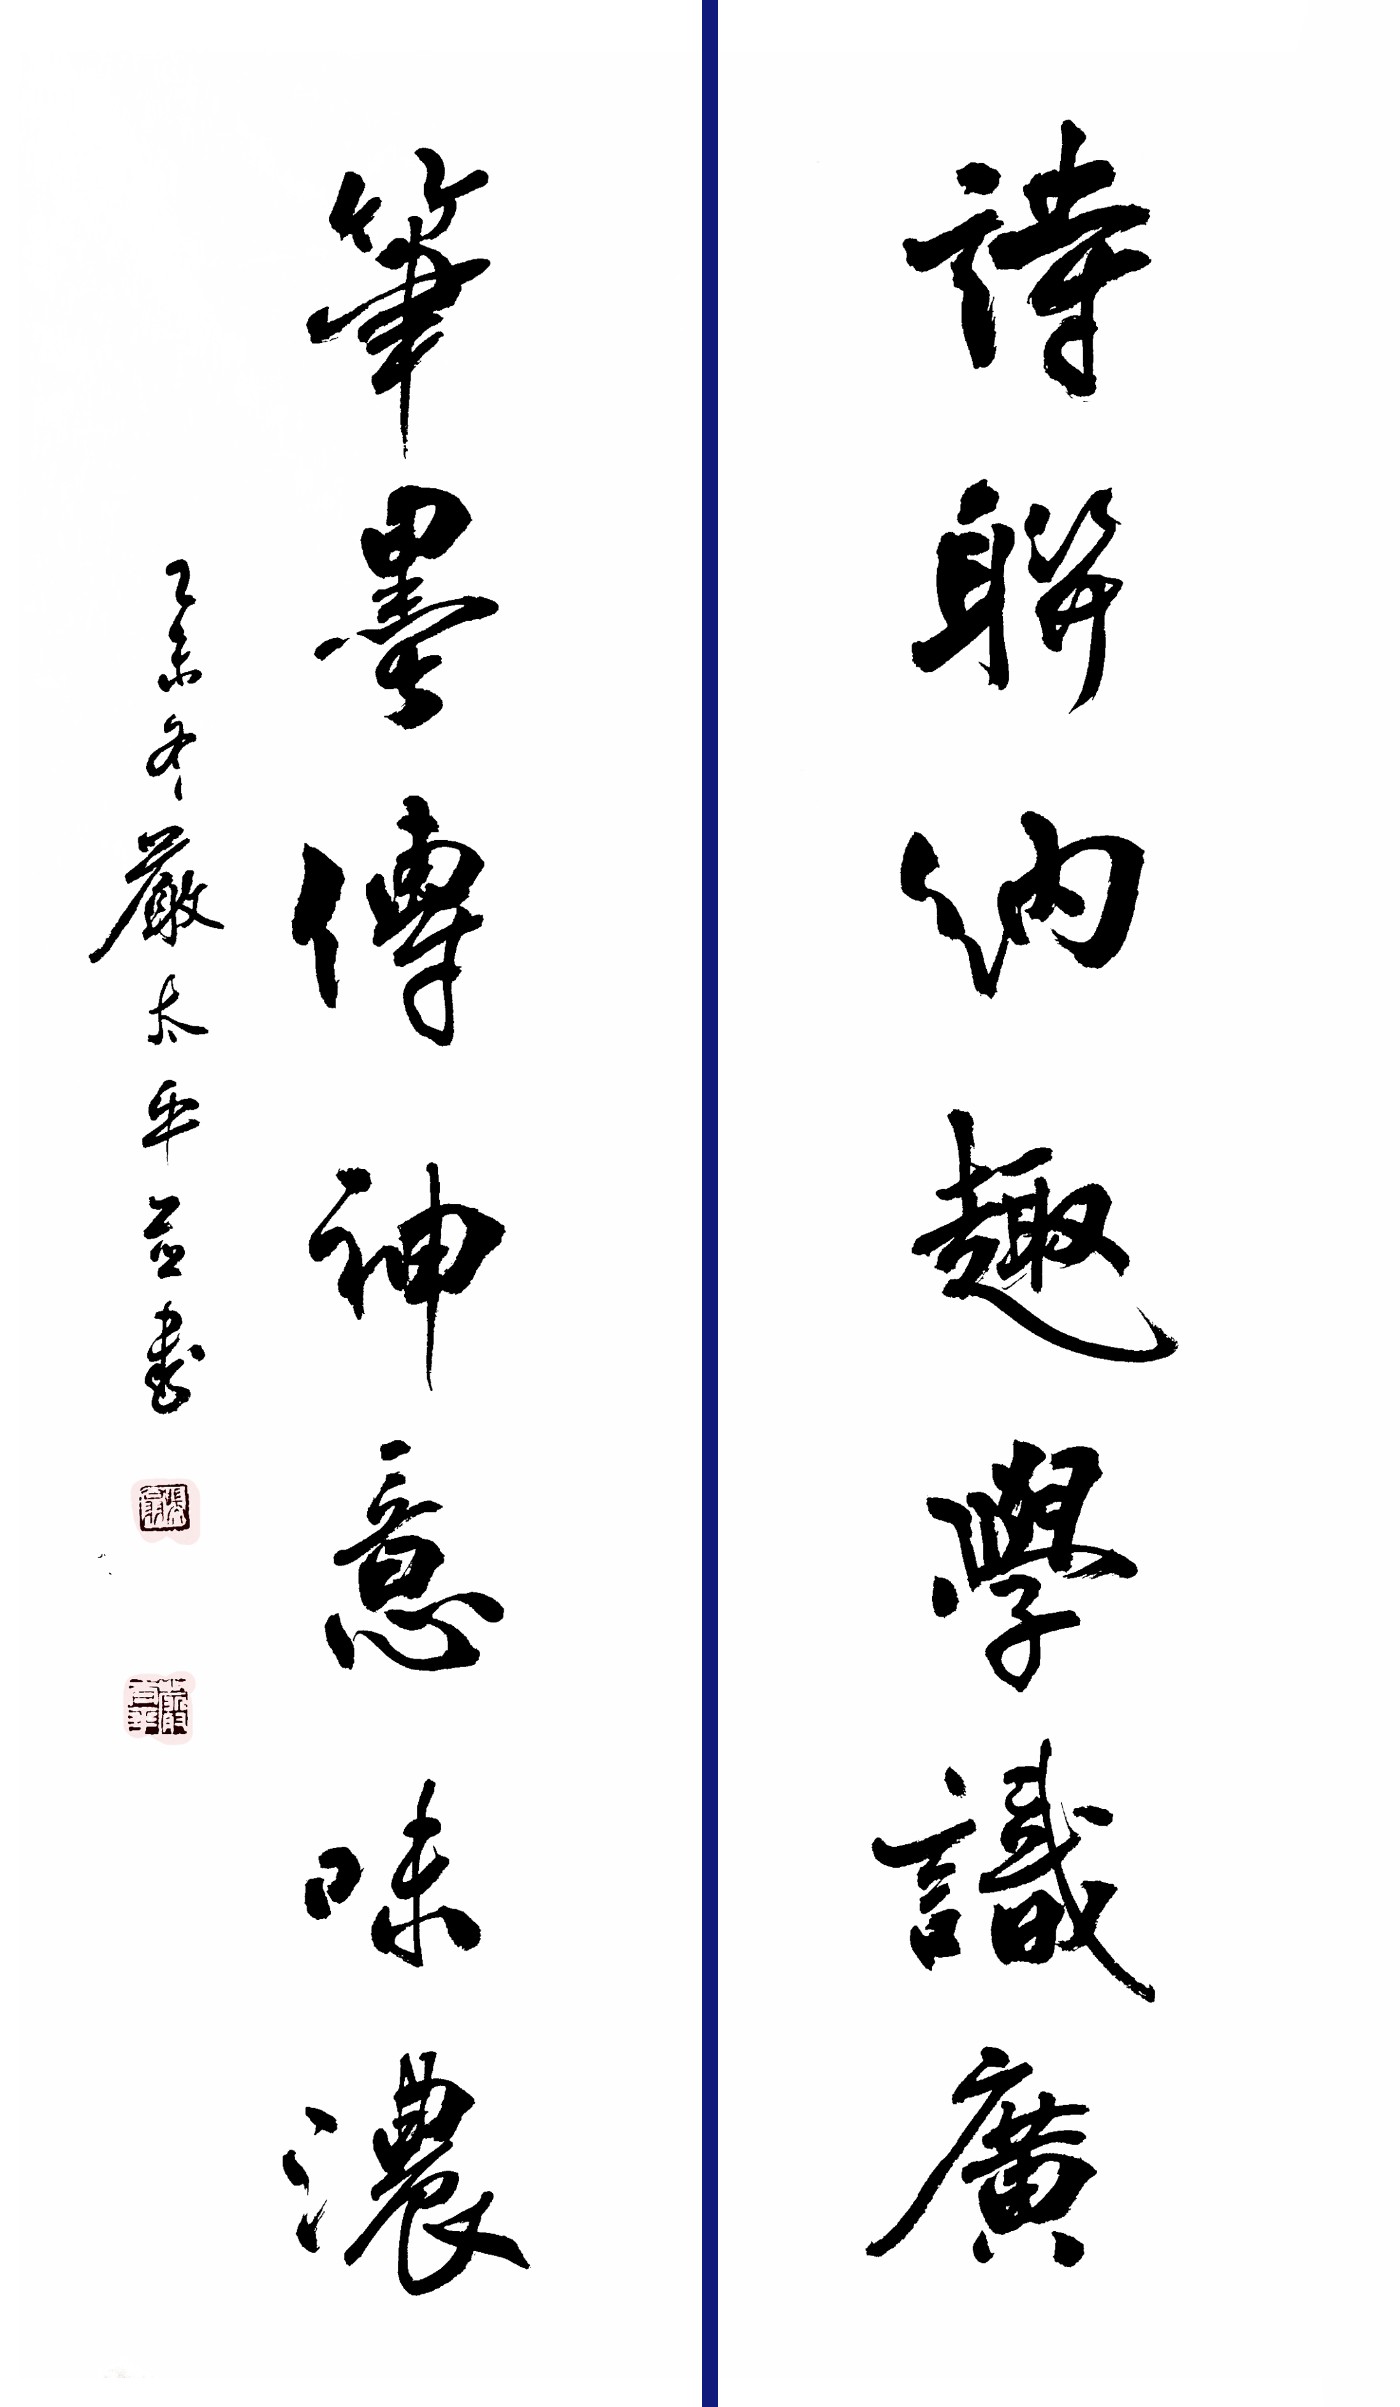 詩聯納趣學識廣
筆墨傳神意味濃
乙未冬嚴太平並書